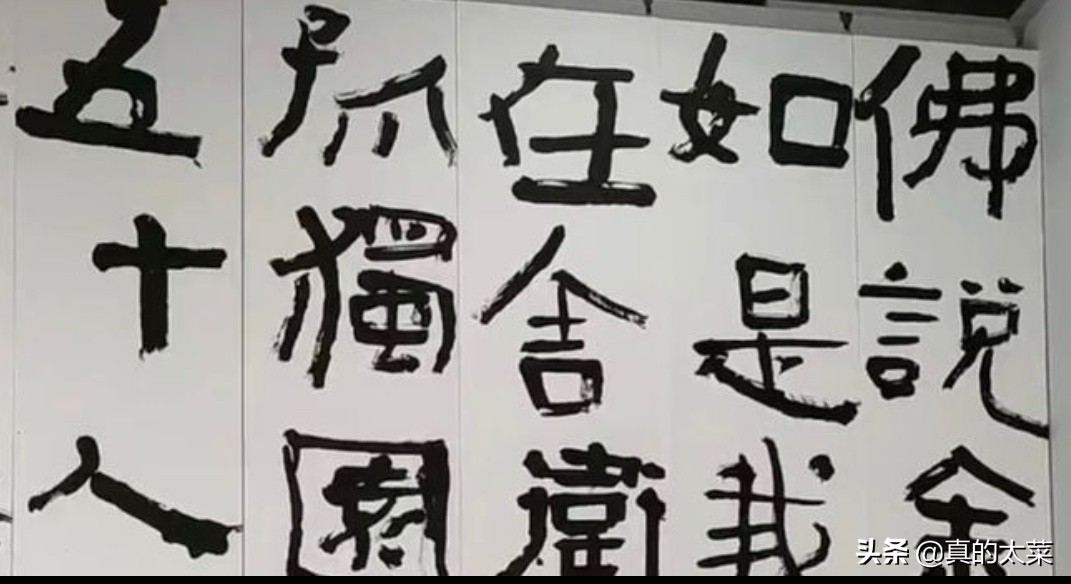 佛說金
如是我
在舍衛
孤獨園
五十人
头条 @真的太菜